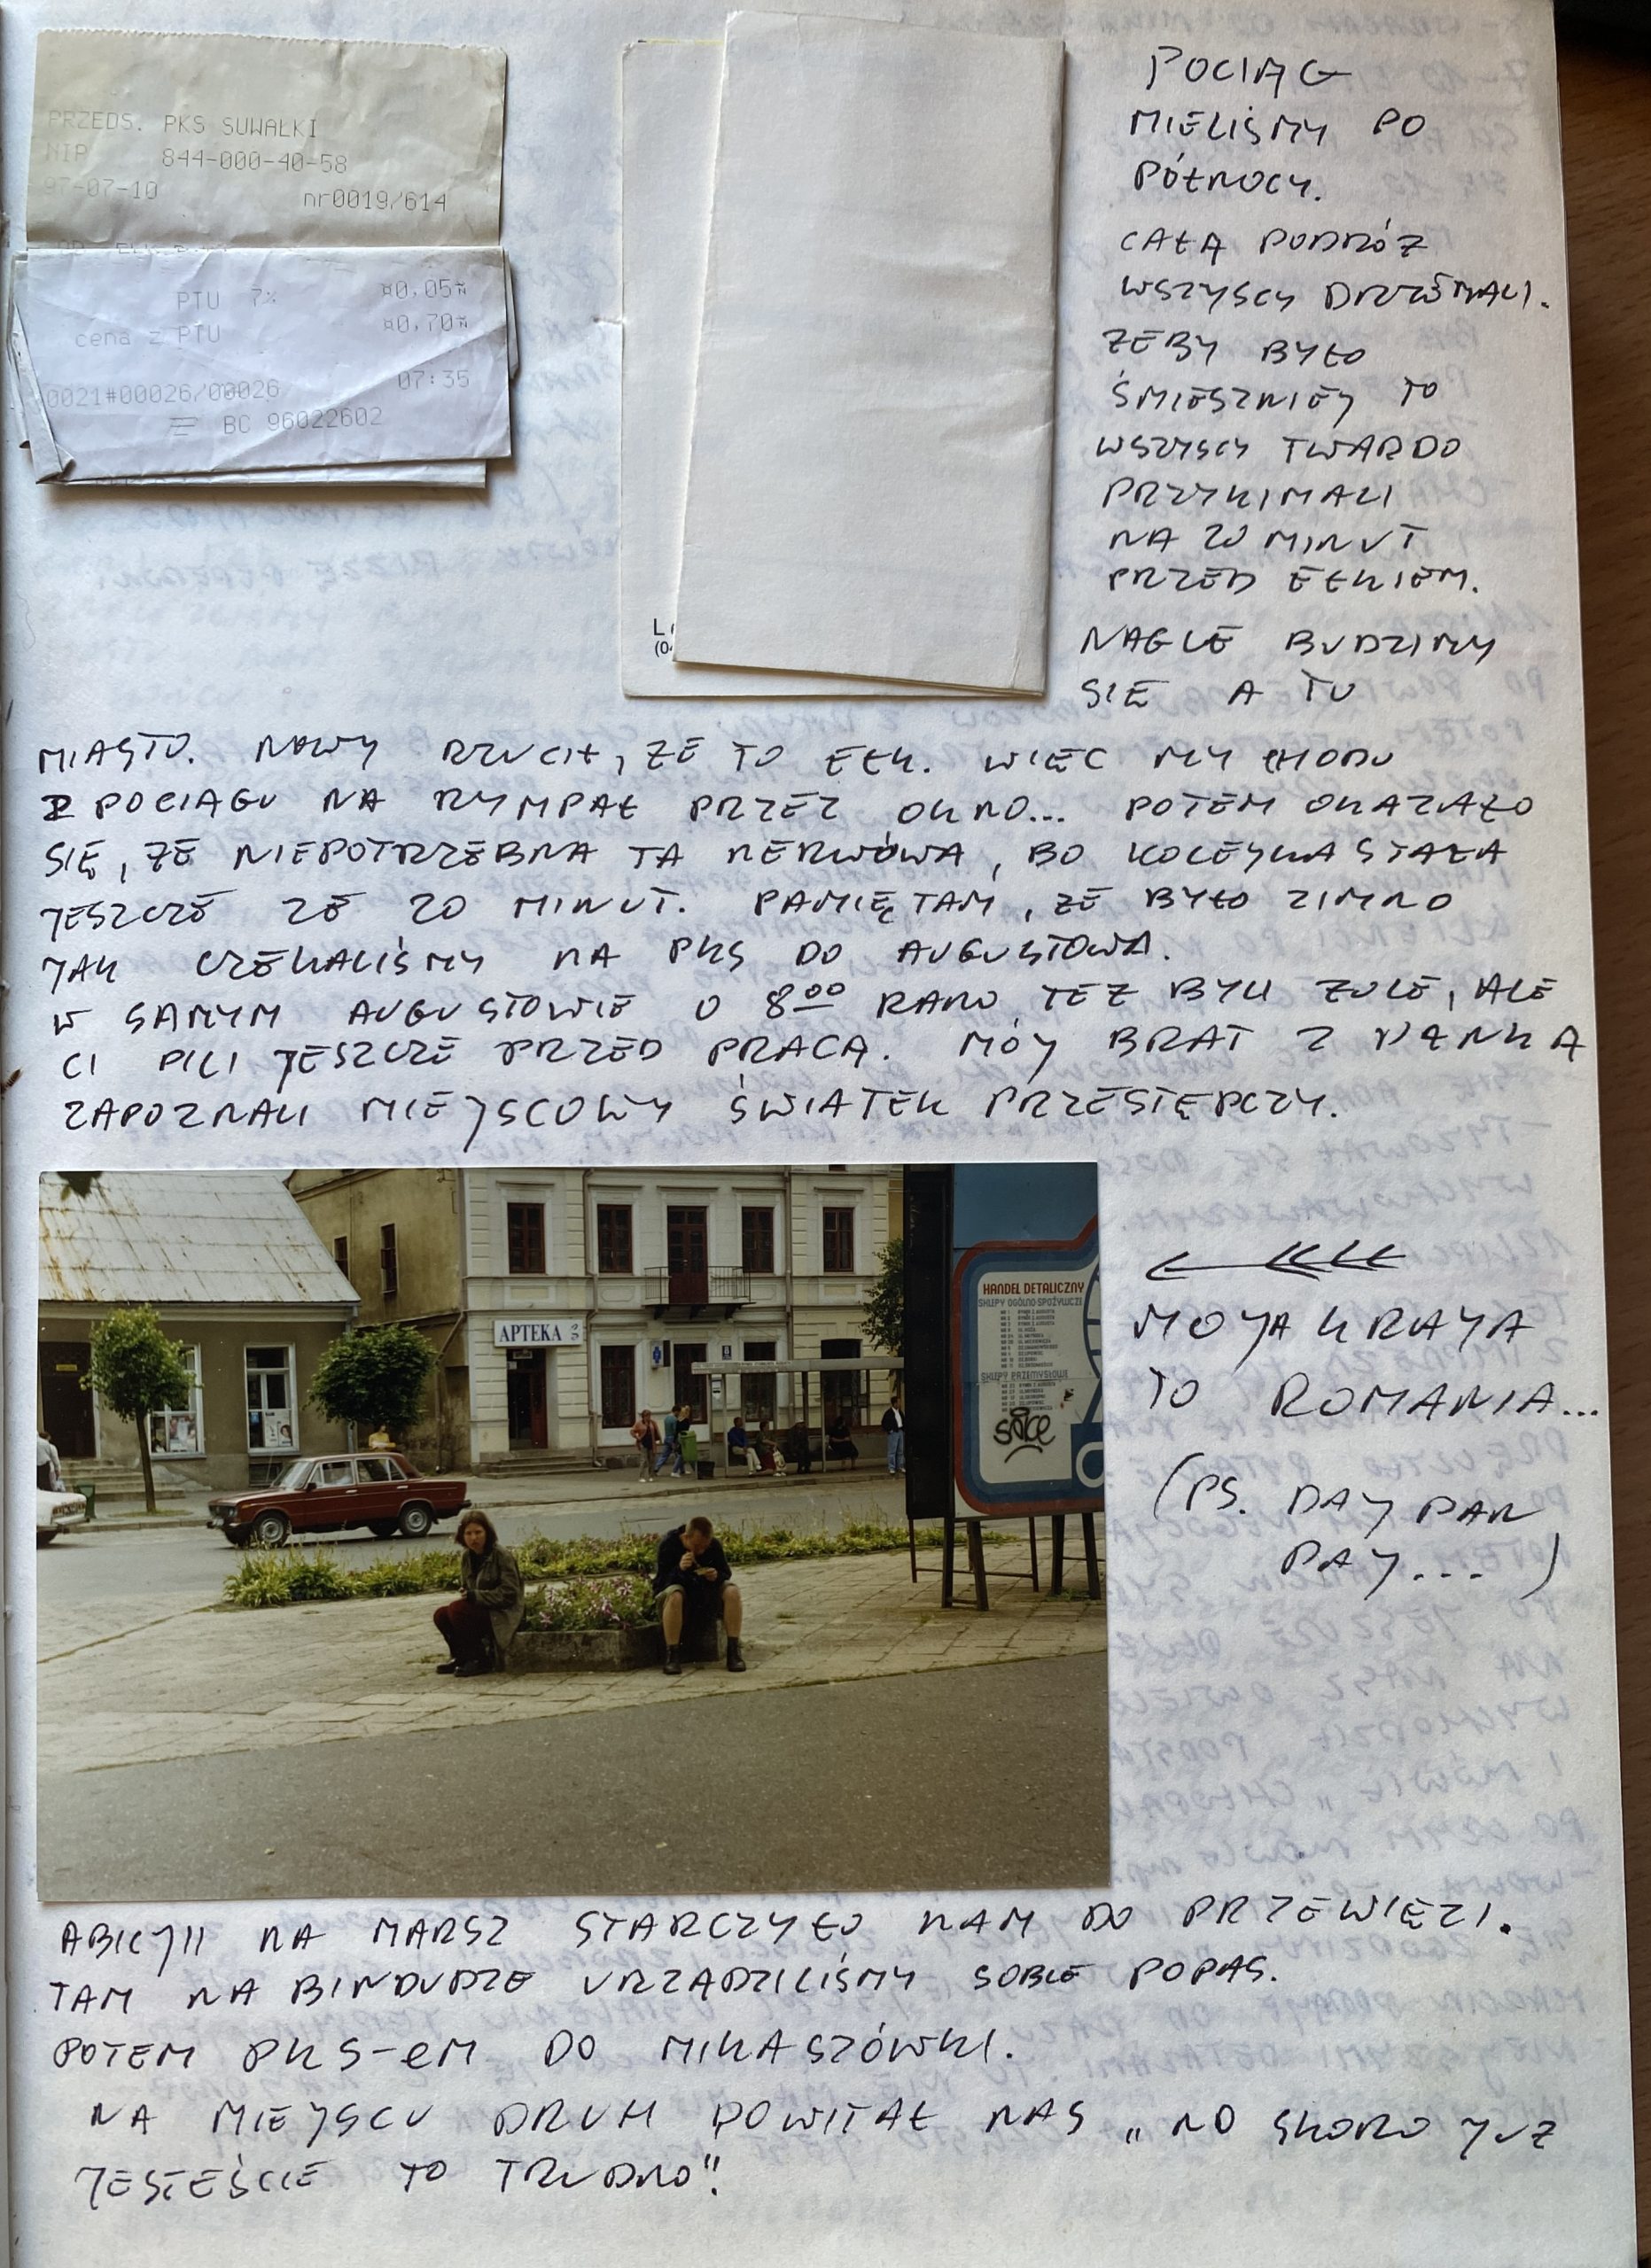 PRZEDS. PKS SUWAŁKI
NIP 844-000-40-58
97-07-10 nr0019/614
PTU 7% ¤0,05¤
cena z PTU ¤0,70¤
0021#00026/00026 07:35
BC 96022602
POCIĄG
MIELIŚMY PO
PÓŁNOCY.
CAŁĄ PODRÓŻ
WSZYSCY DRZEMALI.
ŻEBY BYŁO
ŚMIESZNIEJ TO
WSZYSCY TWARDO
PRZYKIMALI
NA 20 MINUT
PRZED EŁKIEM.
NAGLE BUDZIMY
SIĘ A TU
MIASTO. NOWY RZUCIŁ, ŻE TO EŁK. WIĘC MY CHODU
Z POCIĄGU NA RYMPAŁ PRZEZ OKNO... POTEM OKAZAŁO
SIĘ, ŻE NIEPOTRZEBNA TA NERWÓWA, BO KOLEJKA STAŁA
JESZCZE ZE 20 MINUT. PAMIĘTAM, ŻE BYŁO ZIMNO
JAK CZEKALIŚMY NA PKS DO AUGUSTOWA.
W SAMYM AUGUSTOWIE O 8⁰⁰ RANO TEŻ BYLI ŻULE, ALE
CI PILI JESZCZE PRZED PRACĄ. MÓJ BRAT Z
ZAPOZNALI MIEJSCOWY ŚWIATEK PRZESTĘPCZY.
APTEKA
HANDEL DETALICZNY
SKLEPY OGÓLNO-SPOŻYWCZE
SKLEPY PRZEMYSŁOWE
MOJA KRAJA
TO ROMANIA...
(PS. DAJ PAN
DAJ...)
ABICJII NA MARSZ STARCZYŁO NAM DO PRZEWIĘZI.
TAM NA BINDUDZE URZĄDZILIŚMY SOBIE POPAS.
POTEM PKS-eM DO MIKASZÓWKI.
NA MIEJSCU DRUH POWITAŁ NAS „NO SKORO JUŻ
JESTEŚCIE TO TRUDNO".